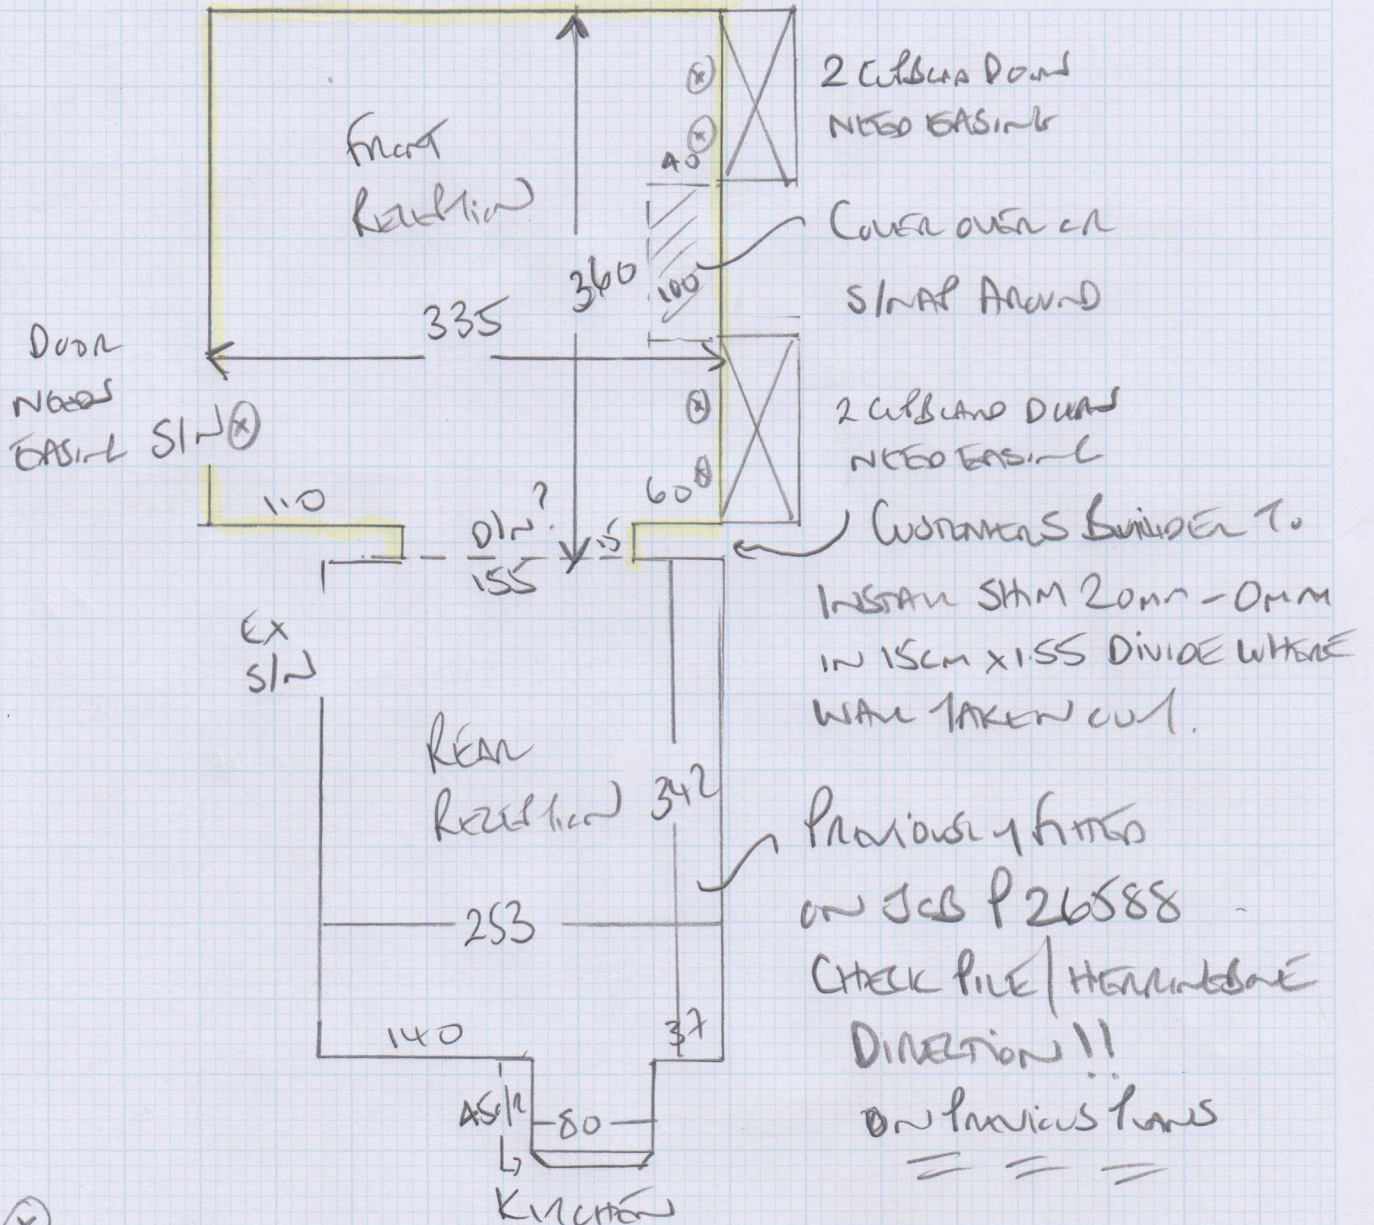 2 CUPBOARD DOORS
NEED EASING
FRONT
RECEPTION
40
COVER OVER OR
S/NAP AROUND
360
100
335
DOOR
NEEDS
EASING S/N
2 CUPBOARD DOORS
NEED EASING
110
D/N?
155
15
60
CUSTOMERS BUILDER TO
INSTALL SHIM 20MM - 0MM
IN 15CM X 155 DIVIDE WHERE
WALL TAKEN OUT.
EX
S/N
REAR
RECEPTION
342
253
PREVIOUSLY FITTED
ON JOB P26588
CHECK PILE / HERRINGBONE
DIRECTION!!
ON PREVIOUS PLANS
140
37
80
KITCHEN